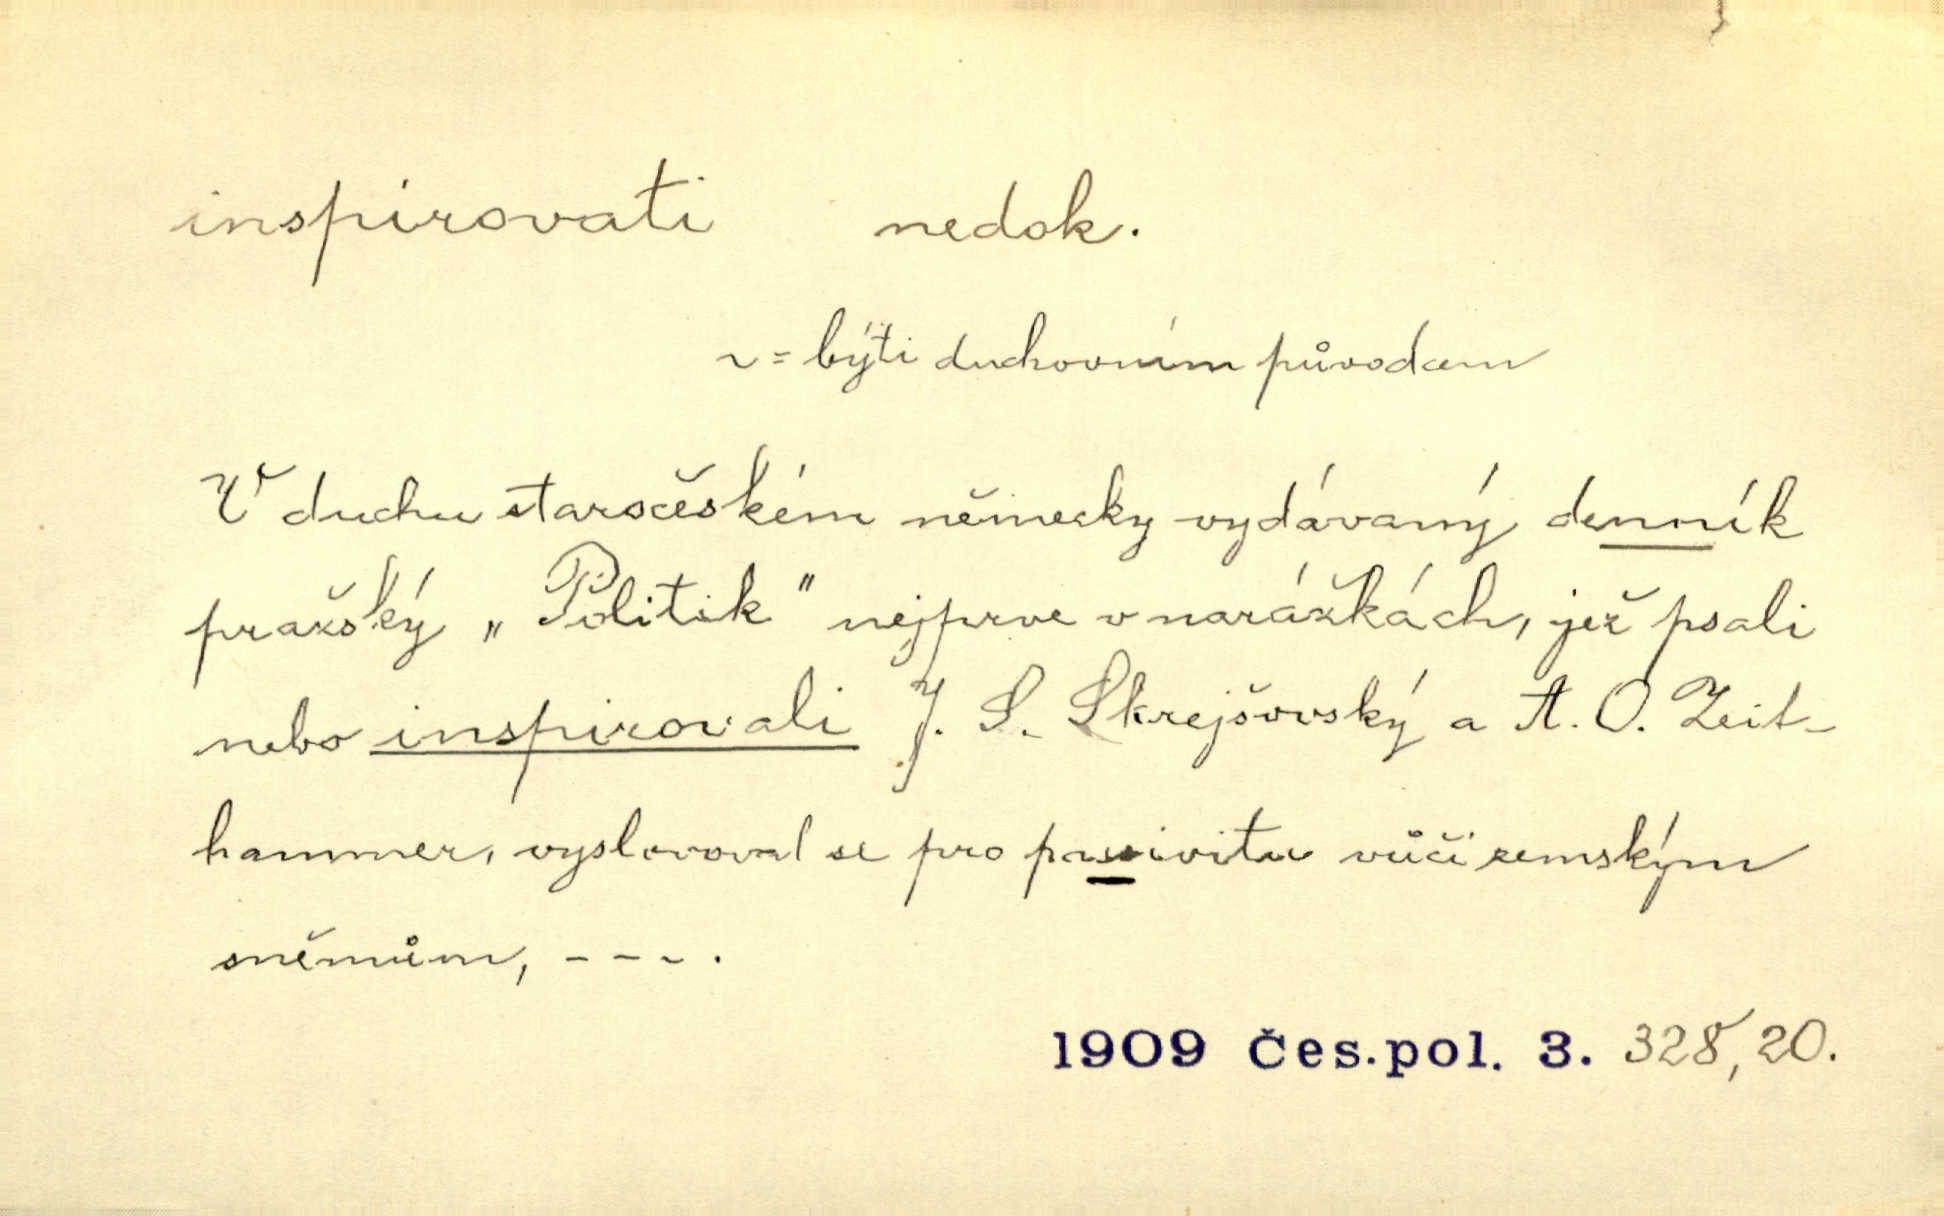 inspirovati nedok.
~ = býti duchovním původcem
V duchu staročeském německy vydávaný denník
pražský „Politik" nejprve v narážkách, jež psali
nebo inspirovali J. S. Skrejšovský a A. O. Zeit-
hammer, vyslovoval se pro passivitu vůči zemským
sněmům, - - - .
1909 Čes.pol. 3. 328, 20.